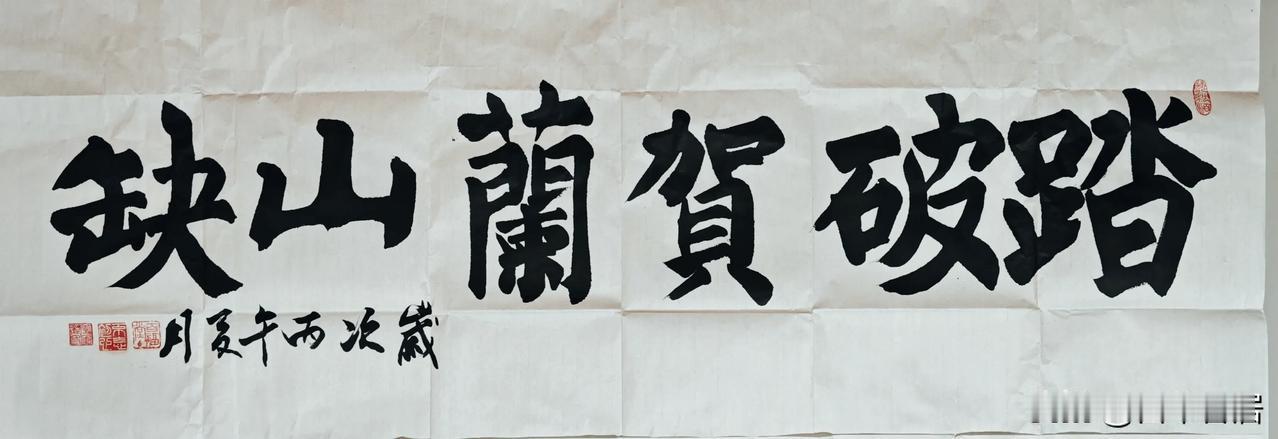 踏破賀蘭山缺
歲次丙午夏月